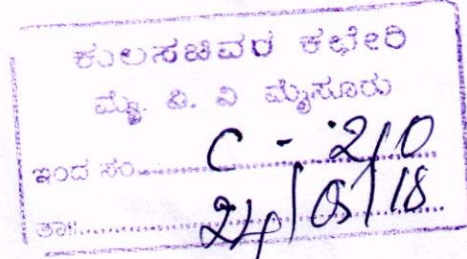 ಕುಲಸಚಿವರ ಕಛೇರಿ
ಮೈ. ವಿ. ವಿ ಮೈಸೂರು
ಇಂದ ಸಂ......... C - 210
ತಾ:......... 24/05/18